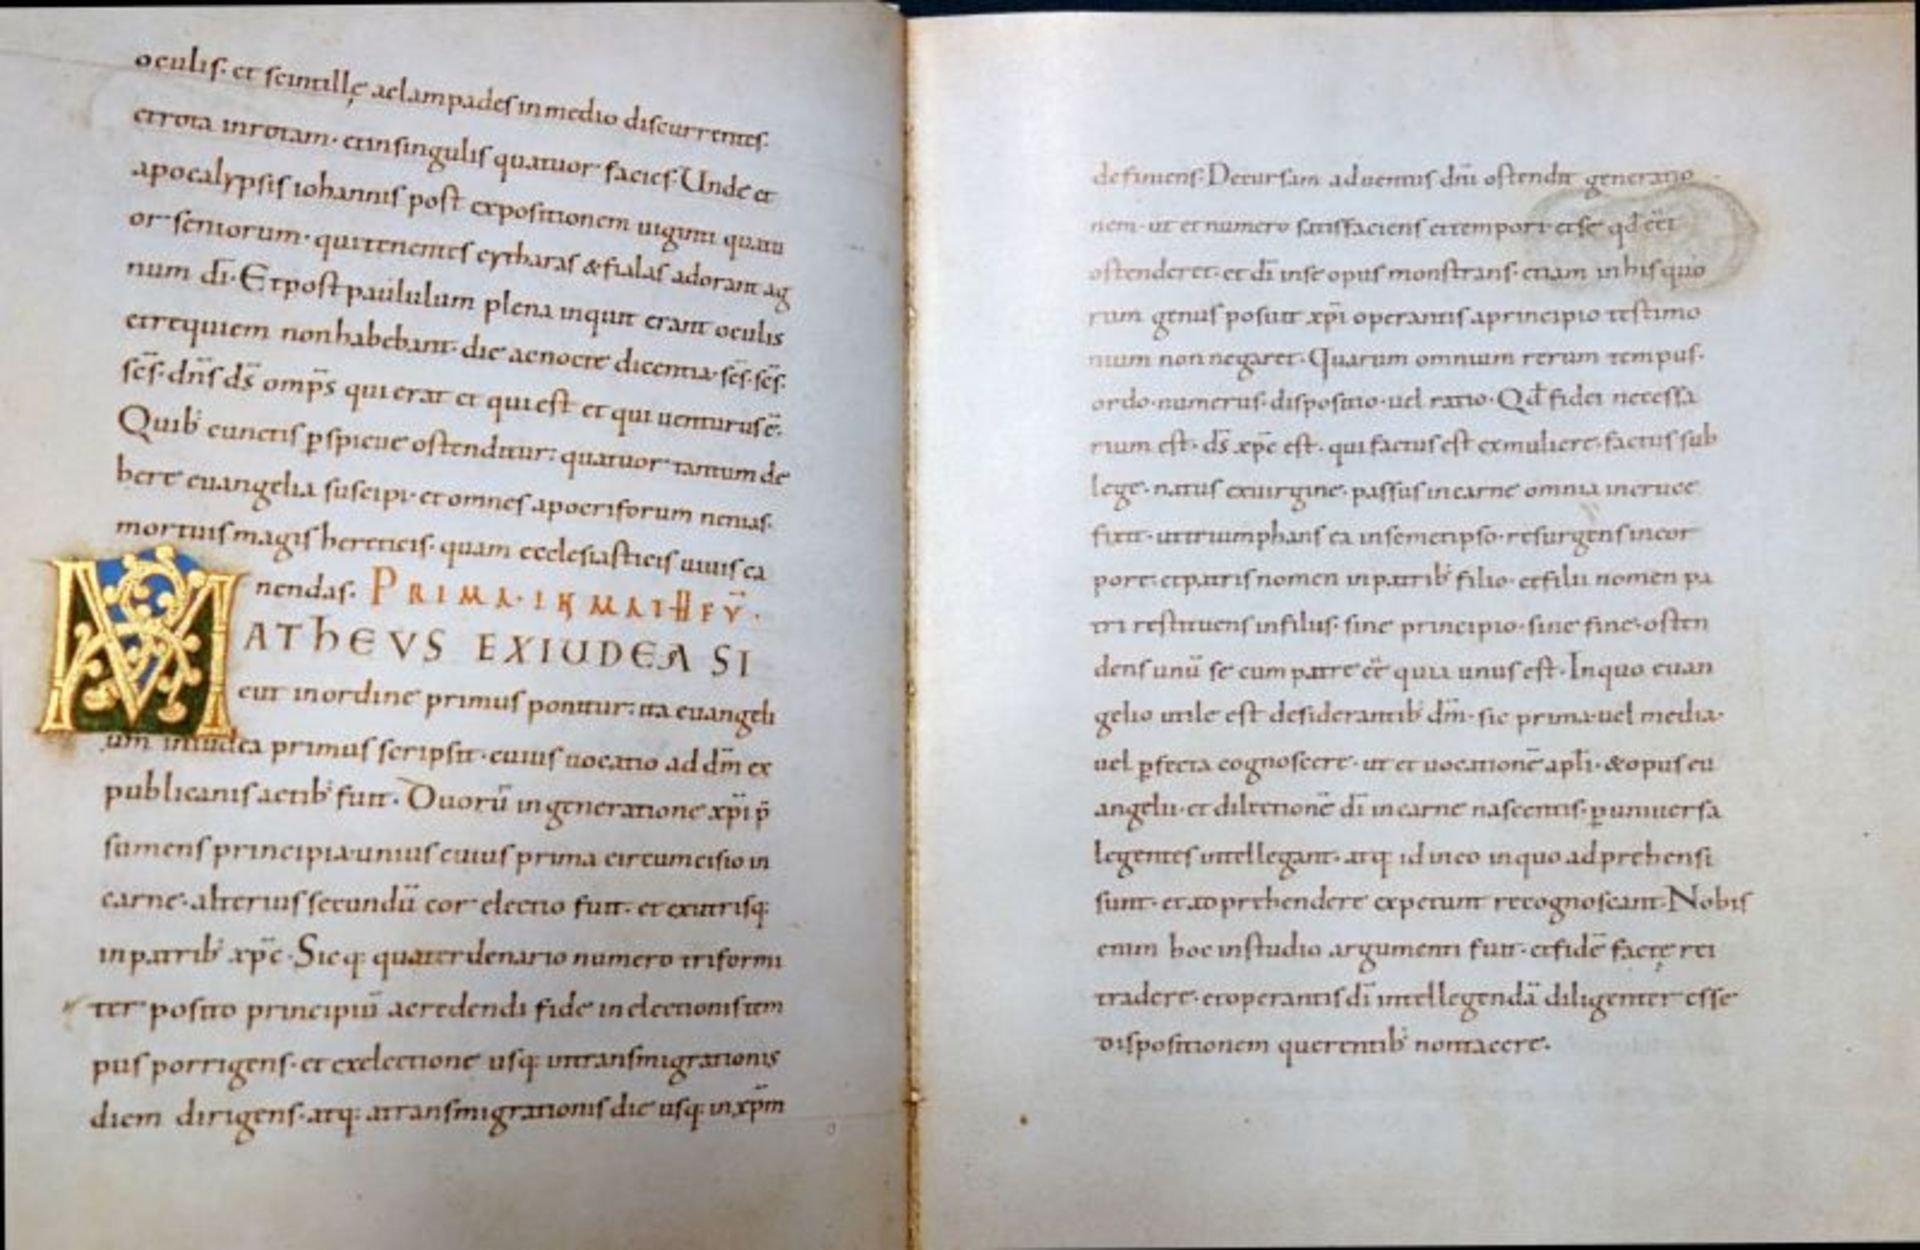 oculis· et scintillę aclampades inmedio discurrentes·
etrota inrotam· etinsingulis quatuor facies· Unde et
apocalypsis iohannis post expositionem uiginti quatu
or seniorum· quitenentes cytharas &fialas adorant ag
num dī· Etpost paululum plena inquit erant oculis
etrequiem nonhabebant· die acnocte dicentia· sc̄s· sc̄s·
sc̄s· dn̄s ds̄ omp̄s qui erat et qui est et qui uenturusē·
Quib; cunctis p̱spicue ostenditur: quatuor tantum de
bere euangelia suscipi· et omnes apocriforum nenias·
mortuis magis hereticis· quam ecclesiasticis uiuis ca
nendas· PRIMA· IN MATHEV̄·
MATHEVS EXIUDEA SI
cut inordine primus ponitur: ita euangeli
um iniudea primus scripsit· cuius uocatio ad dm̄ ex
publicanis actib; fuit· Duorū ingeneratione xp̄i p̄
sumens principia· unius cuius prima circumcisio in
carne· alterius secundū cor electio fuit· et exutrisq;
inpatrib; xp̄c· Sicq; quaterdenario numero triformi
ter posito principiū acredendi fide inelectionis tem
pus porrigens· et exelectione usq; intransmigrationis
diem dirigens· atq; atransmigrationis die usq; inxp̄m
definiens· Decursam aduentus dn̄i ostendit generatio
nem· ut et numero satisfaciens ettempori· et se qd̄ eēt
ostenderet· et dī inse opus monstrans· etiam inhis quo
rum genus posuit xp̄i operantis aprincipio testimo
nium non negaret· Quarum omnium rerum tempus·
ordo· numerus· dispositio· uel ratio· Qd̄ fidei necessa
rium est· ds̄ xp̄c est· qui factus est exmuliere· factus sub
lege· natus exuirgine· passus incarne omnia incruce
fixit· uttriumphans ea insemetipso· resurgens incor
pore· etpatris nomen inpatrib; filio· etfilii nomen pa
tri restituens infilius· sine principio· sine fine· osten
dens unū se cum patre eē· quia unus est· Inquo euan
gelio utile est desiderantib; dm̄· sic prima· uel media·
uel p̱fecta cognoscere· ut et uocationē apl̄i· &opus eu
angelii· et dilectionē dī incarne nascentis· p̱ uniuersa
legentes intellegant· atq; id ineo inquo adprehensi
sunt· et adprehendere expetunt recognoscant· Nobis
enim hoc instudio argumenti fuit· et fidē factę rei
tradere· et operantis dī intellegendā diligenter esse
dispositionem querentib; nontacere·